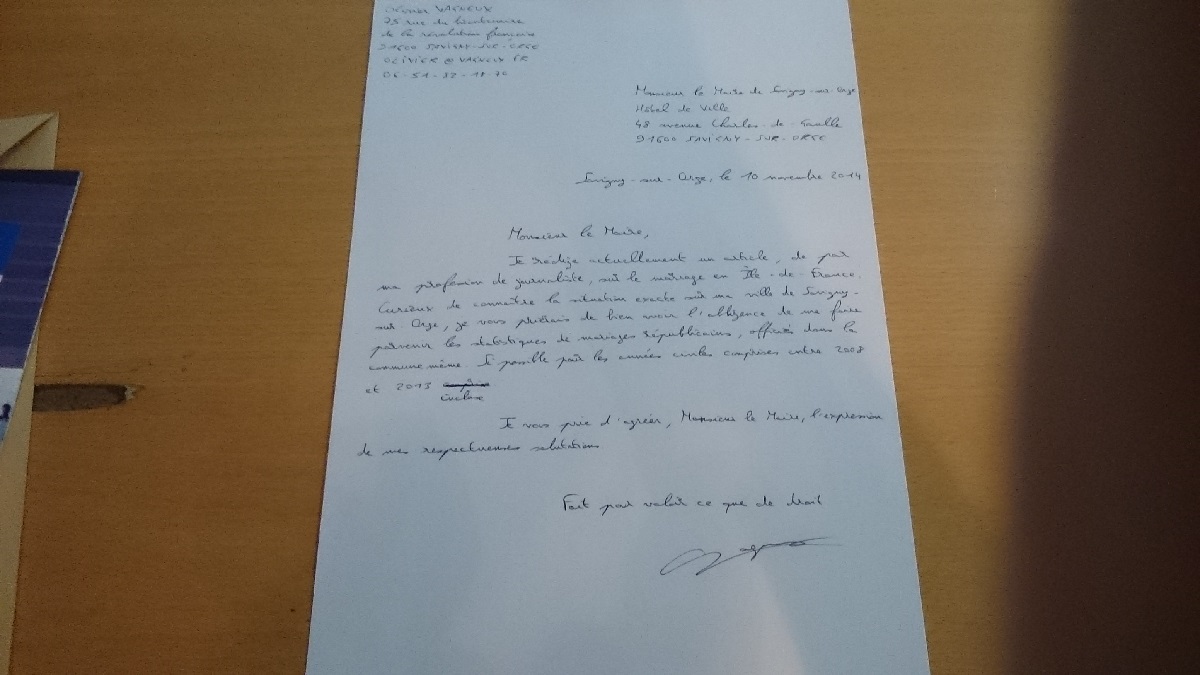 Olivier VAGNEUX
25 rue du bicentenaire
de la révolution française
91600 SAVIGNY-SUR-ORGE
OLIVIER@VAGNEUX.FR
06-51-82-18-70
Monsieur le Maire de Savigny-sur-Orge
Hôtel de Ville
48 avenue Charles-de-Gaulle
91600 SAVIGNY-SUR-ORGE
Savigny-sur-Orge, le 10 novembre 2014
Monsieur le Maire,
Je rédige actuellement un article, de par
ma profession de journaliste, sur le mariage en Île-de-France.
Curieux de connaître la situation exacte sur ma ville de Savigny-
sur-Orge, je vous prierais de bien avoir l'obligence de me faire
parvenir les statistiques de mariages républicains, officiés dans la
commune même. Si possible pour les années civiles comprises entre 2008
et 2013
incluse
Je vous prie d'agréer, Monsieur le Maire, l'expression
de mes respectueuses salutations
Fait pour valoir ce que de droit